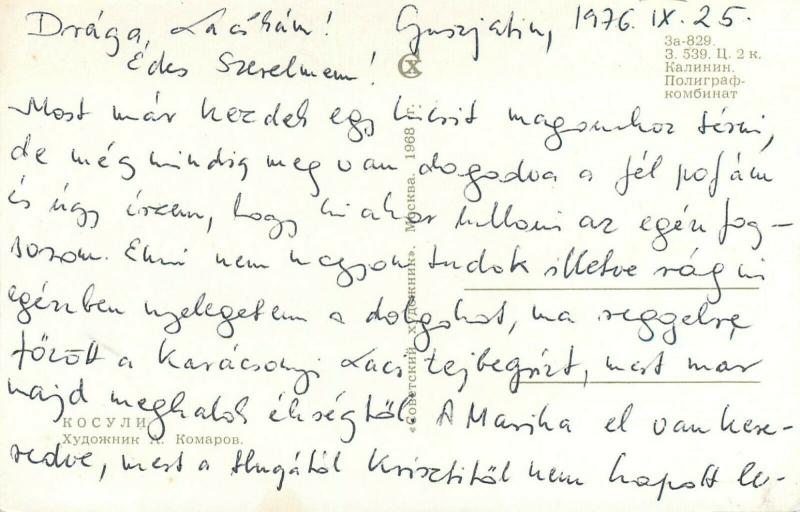 Drága Lacikám! Guszjatin, 1976. IX. 25.
Édes Szerelmem!
За-829.
З. 539. Ц. 2 к.
Калинин.
Полиграф-
комбинат
Most már kezdek egy kicsit magamhoz térni,
de még mindig meg van dagadva a fél pofám
és úgy érzem, hogy ki akar hullani az egész fog-
sorom. Enni nem nagyon tudok illetve rágni
egészben nyelegetem a dolgokat, ma reggelre
főzött a Karácsonyi Laci tejbegrízt, mert már
majd meghalok éhségtől. A Marika el van kese-
redve, mert a húgától Krisztitől nem kapott le-
«Советский художник». Москва. 1968 г.
КОСУЛИ
Художник А. Комаров.